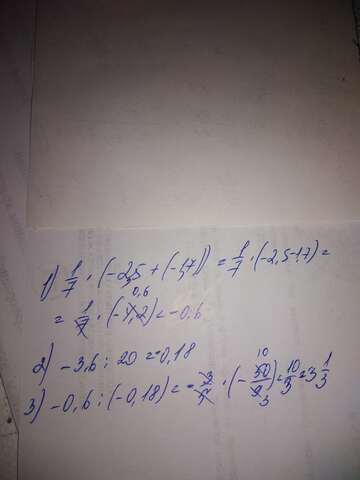 1) 1/7 · (-2,5 + (-1,7)) = 1/7 · (-2,5-1,7) =
= 1/7 · (-4,2) = -0,6
2) -3,6 : 20 = 0,18
3) -0,6 : (-0,18) = - 3/5 · (- 50/9) = 10/3 = 3 1/3